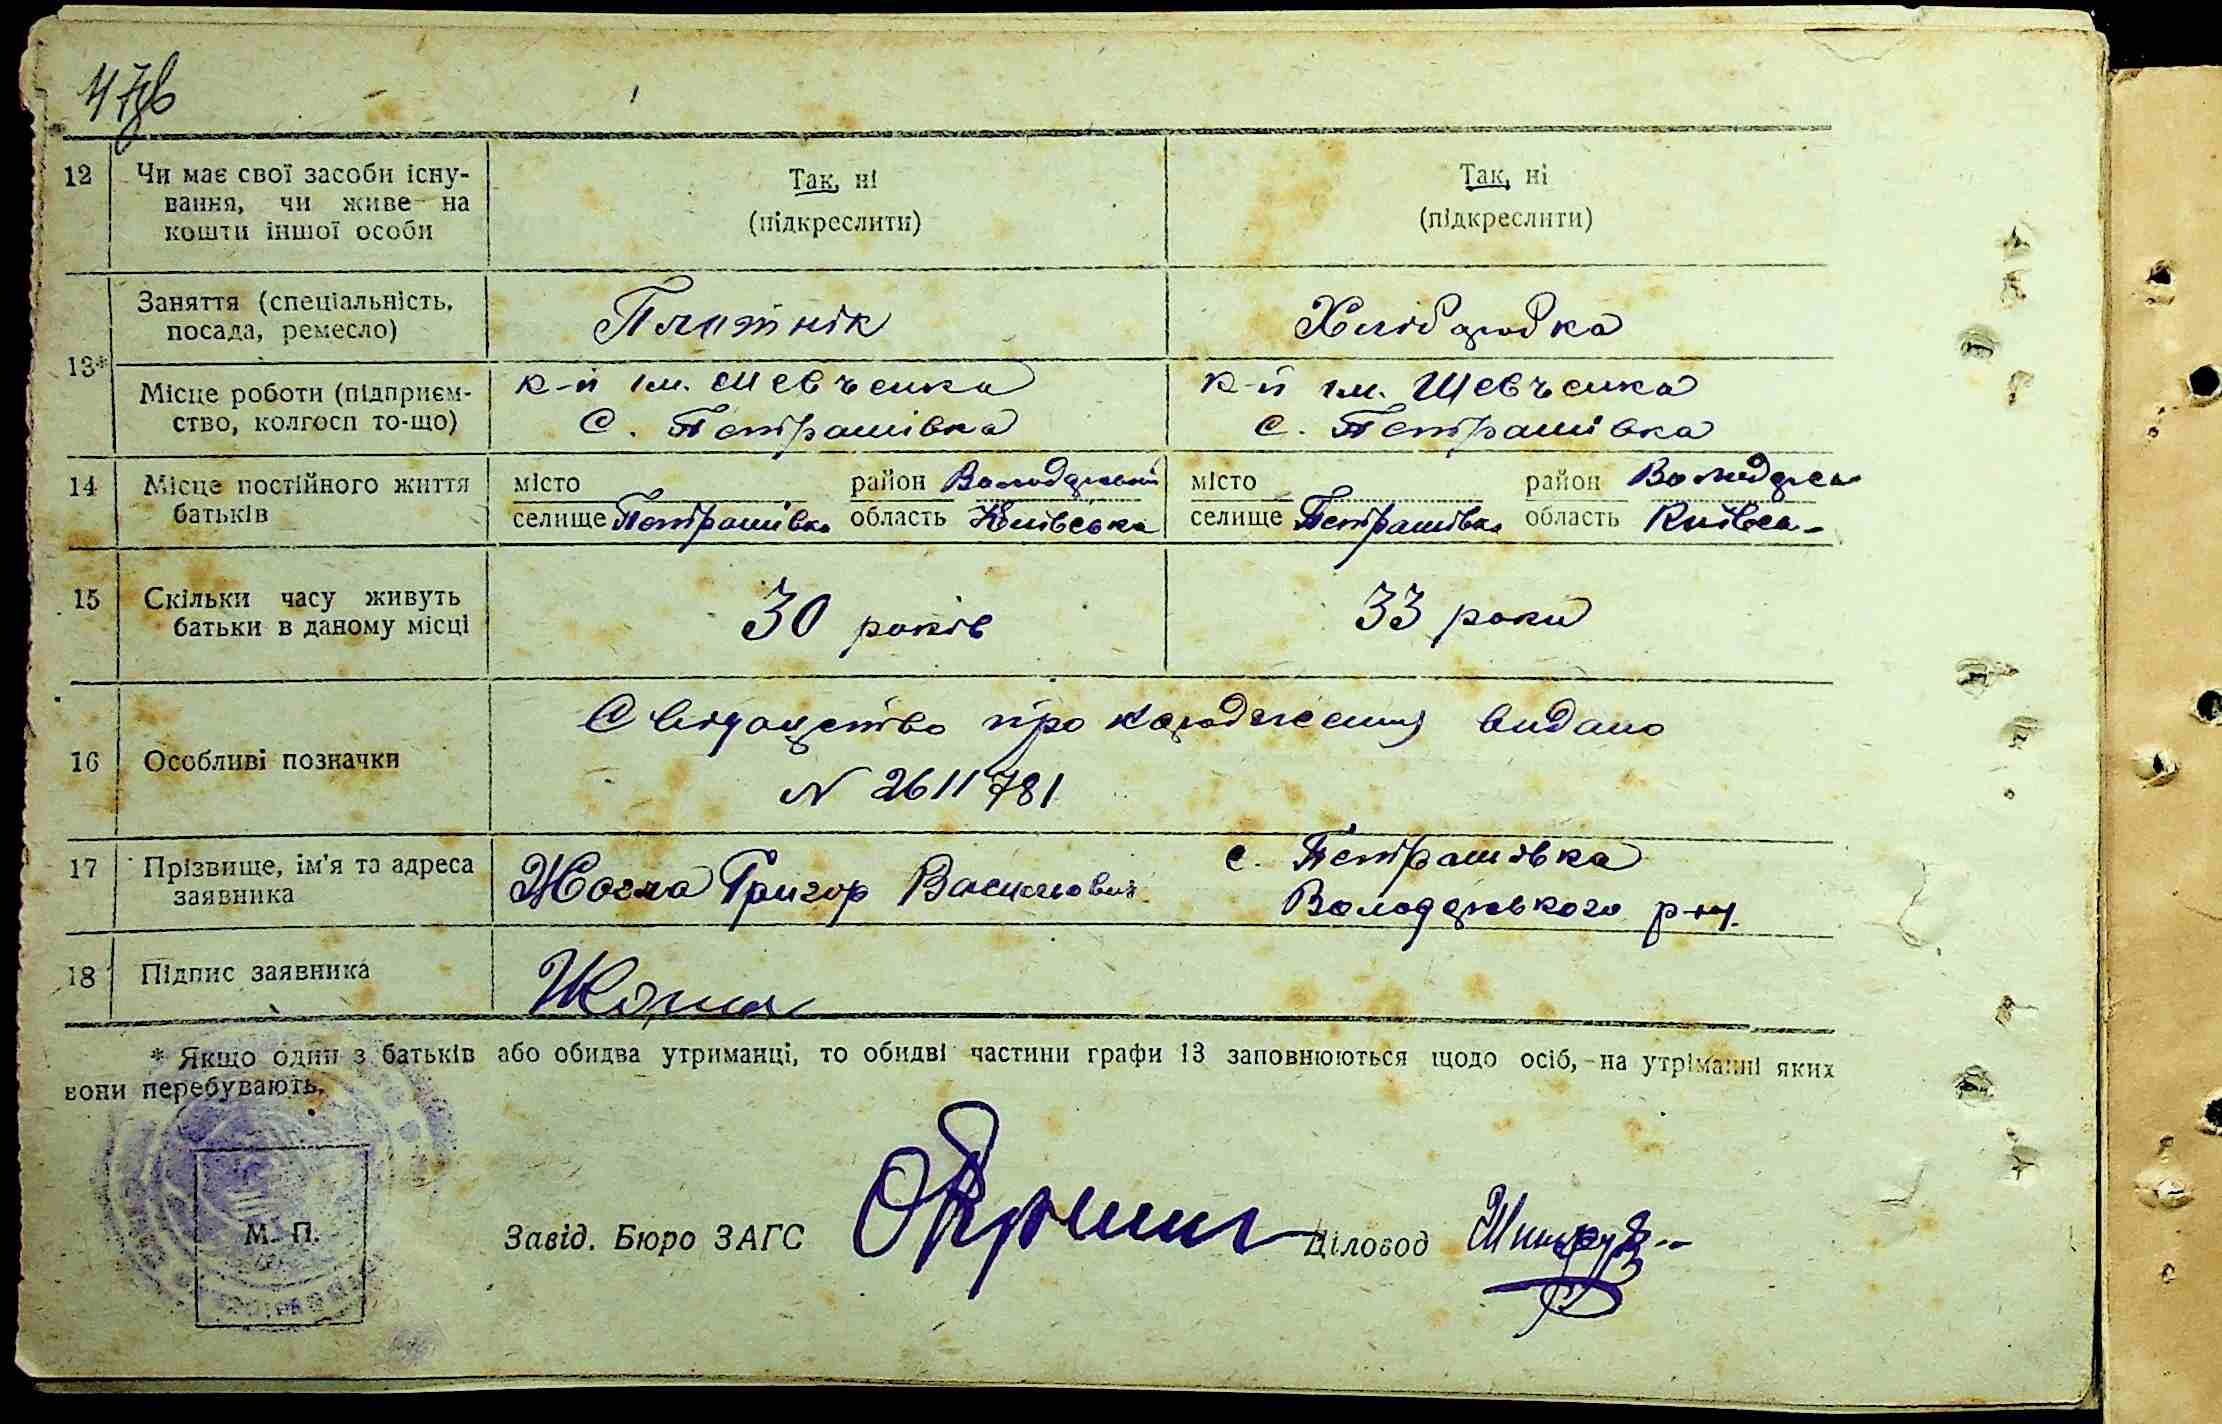 47зв
12 Чи має свої засоби існу- Так, ні Так, ні
вання, чи живе на (підкреслити) (підкреслити)
кошти іншої особи
13* Заняття (спеціальність, Плотнік Хліборобка
посада, ремесло)
Місце роботи (підприєм- к-п ім. Шевченка к-п ім. Шевченка
ство, колгосп то-що) С. Петрашівка с. Петрашівка
14 Місце постійного життя місто район Володарський місто район Володарсь
батьків селище Петрашівка область Київська селище Петрашівка область Київсь-
15 Скільки часу живуть 30 років 33 роки
батьки в даному місці
16 Особливі позначки Свидоцтво про народження видано
N 2611781
17 Прізвище, ім'я та адреса Григор Васильович с. Петрашівка
заявника Володарського р-ну.
18 Підпис заявника
* Якщо один з батьків або обидва утриманці, то обидві частини графи 13 заповнюються щодо осіб, на утріманні яких
вони перебувають.
М. П. Завід. Бюро ЗАГС Діловод